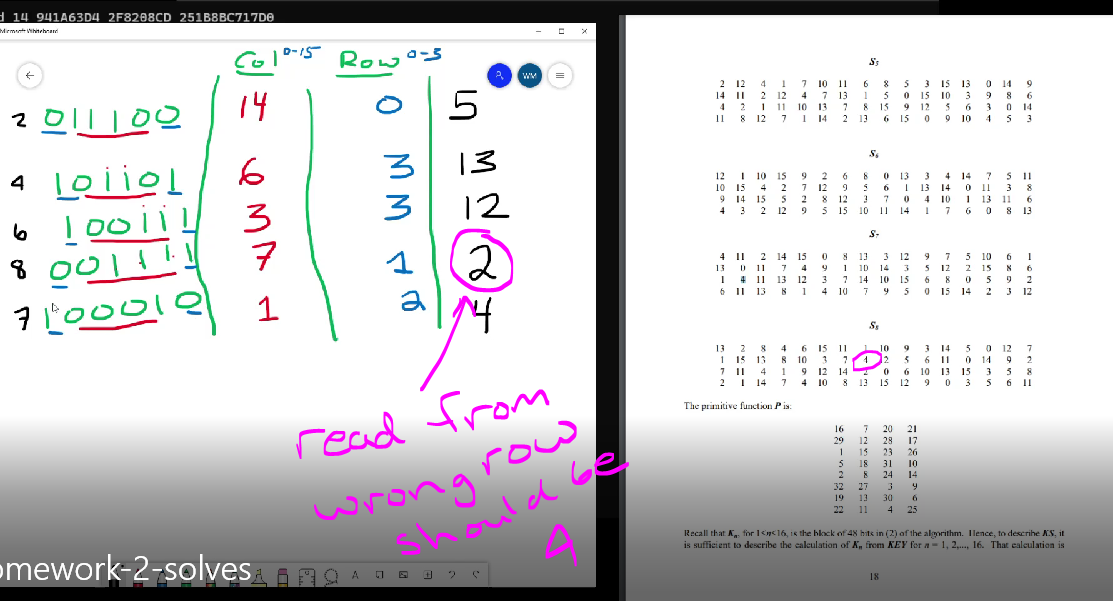 d 14 941A63D4 2F8208CD 251B8BC717D0
Microsoft Whiteboard
WM
Col 0-15 Row 0-3
2 011100 14 0 5
4 101101 6 3 13
6 100111 3 3 12
8 001111 7 1 2
7 100010 1 2 4
read from
wrong row
should be
4
omework-2-solves
S5
2 12 4 1 7 10 11 6 8 5 3 15 13 0 14 9
14 11 2 12 4 7 13 1 5 0 15 10 3 9 8 6
4 2 1 11 10 13 7 8 15 9 12 5 6 3 0 14
11 8 12 7 1 14 2 13 6 15 0 9 10 4 5 3
S6
12 1 10 15 9 2 6 8 0 13 3 4 14 7 5 11
10 15 4 2 7 12 9 5 6 1 13 14 0 11 3 8
9 14 15 5 2 8 12 3 7 0 4 10 1 13 11 6
4 3 2 12 9 5 15 10 11 14 1 7 6 0 8 13
S7
4 11 2 14 15 0 8 13 3 12 9 7 5 10 6 1
13 0 11 7 4 9 1 10 14 3 5 12 2 15 8 6
1 4 11 13 12 3 7 14 10 15 6 8 0 5 9 2
6 11 13 8 1 4 10 7 9 5 0 15 14 2 3 12
S8
13 2 8 4 6 15 11 1 10 9 3 14 5 0 12 7
1 15 13 8 10 3 7 4 12 5 6 11 0 14 9 2
7 11 4 1 9 12 14 2 0 6 10 13 15 3 5 8
2 1 14 7 4 10 8 13 15 12 9 0 3 5 6 11
The primitive function P is:
16 7 20 21
29 12 28 17
1 15 23 26
5 18 31 10
2 8 24 14
32 27 3 9
19 13 30 6
22 11 4 25
Recall that Kn, for 1≤n≤16, is the block of 48 bits in (2) of the algorithm. Hence, to describe KS, it
is sufficient to describe the calculation of Kn from KEY for n = 1, 2,..., 16. That calculation is
18